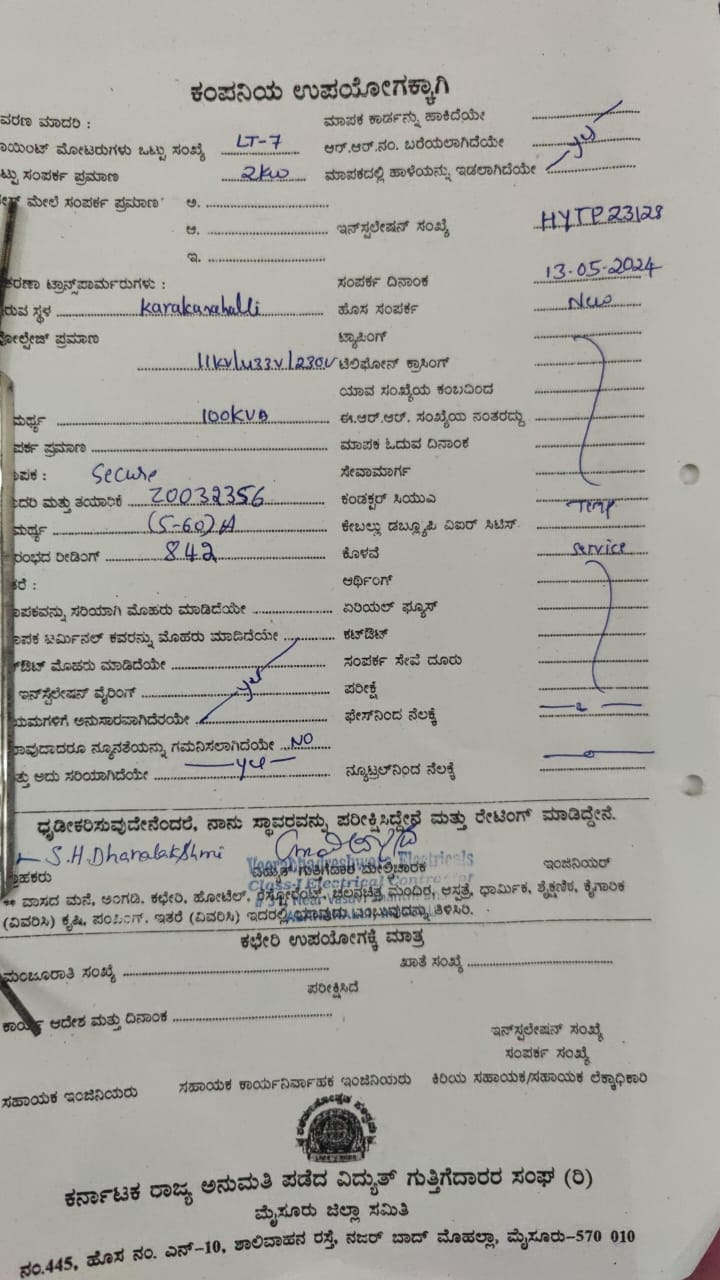 ಕಂಪನಿಯ ಉಪಯೋಗಕ್ಕಾಗಿ
ವರಣ ಮಾದರಿ : ಮಾಪಕ ಕಾರ್ಡನ್ನು ಹಾಕಿದೆಯೇ
ಾಯಿಂಟ್ ಮೋಟರುಗಳು ಒಟ್ಟು ಸಂಖ್ಯೆ LT-7 ಆರ್.ಆರ್.ನಂ. ಬರೆಯಲಾಗಿದೆಯೇ yes
ಟ್ಟು ಸಂಪರ್ಕ ಪ್ರಮಾಣ 2kw ಮಾಪಕದಲ್ಲಿ ಹಾಳೆಯನ್ನು ಇಡಲಾಗಿದೆಯೇ
ಮೇಲೆ ಸಂಪರ್ಕ ಪ್ರಮಾಣ ಅ.
ಆ. ಇನ್‌ಸ್ಟಲೇಷನ್ ಸಂಖ್ಯೆ HYTP23128
ಇ.
ಕರಣಾ ಟ್ರಾನ್ಸ್‌ಪಾರ್ಮರುಗಳು : ಸಂಪರ್ಕ ದಿನಾಂಕ 13-05-2024
ರುವ ಸ್ಥಳ Karakanahalli ಹೊಸ ಸಂಪರ್ಕ New
ೋಲ್ಟೇಜ್ ಪ್ರಮಾಣ ಟ್ಯಾಪಿಂಗ್
11KV/433V/230V ಟೆಲಿಫೋನ್ ಕ್ರಾಸಿಂಗ್
ಯಾವ ಸಂಖ್ಯೆಯ ಕಂಬದಿಂದ
ಮರ್ಥ್ಯ 100KVA ಈ.ಆರ್.ಆರ್. ಸಂಖ್ಯೆಯ ನಂತರದ್ದು
ಪರ್ಕ ಪ್ರಮಾಣ ಮಾಪಕ ಓದುವ ದಿನಾಂಕ
ಾಪಕ : Secure ಸೇವಾಮಾರ್ಗ
ಾದರಿ ಮತ್ತು ತಯಾರಿಕೆ Z0032356 ಕಂಡಕ್ಟರ್ ಸಿಯುಎ Temp
ಮರ್ಥ್ಯ (5-60)A ಕೇಬಲ್ಲು ಡಬ್ಲ್ಯೂಪಿ ವಿಐರ್ ಸಿಟಿಸ್
ರಂಭದ ರೀಡಿಂಗ್ 842 ಕೊಳವೆ service
ತರೆ : ಅರ್ಥಿಂಗ್
ಾಪಕವನ್ನು ಸರಿಯಾಗಿ ಮೊಹರು ಮಾಡಿದೆಯೇ ಏರಿಯಲ್ ಫ್ಯೂಸ್
ಾಪಕ ಟರ್ಮಿನಲ್ ಕವರನ್ನು ಮೊಹರು ಮಾದಿದೆಯೇ ಕಟ್‌ಔಟ್
ಟ್‌ಔಟ್ ಮೊಹರು ಮಾಡಿದೆಯೇ ಸಂಪರ್ಕ ಸೇವೆ ದೂರು
ಇನ್‌ಸ್ಟೆಲೇಷನ್ ವೈರಿಂಗ್ yes ಪರೀಕ್ಷೆ
ಯಮಗಳಿಗೆ ಅನುಸಾರವಾಗಿದೆರಯೇ ಫೇಸ್‌ನಿಂದ ನೆಲಕ್ಕೆ
ಾವುದಾದರೂ ನ್ಯೂನತೆಯನ್ನು ಗಮನಿಸಲಾಗಿದೆಯೇ NO
ತ್ತು ಅದು ಸರಿಯಾಗಿದೆಯೇ yes ನ್ಯೂಟ್ರಲ್‌ನಿಂದ ನೆಲಕ್ಕೆ
ಧೃಡೀಕರಿಸುವುದೇನೆಂದರೆ, ನಾನು ಸ್ಥಾವರವನ್ನು ಪರೀಕ್ಷಿಸಿದ್ದೇನೆ ಮತ್ತು ರೇಟಿಂಗ್ ಮಾಡಿದ್ದೇನೆ.
S.H.Dharalakshmi
ಾಹಕರು ವಿದ್ಯುತ್ ಗುತ್ತಿಗೆದಾರ ಮೇಲ್ವಿಚಾರಕ ಇಂಜಿನಿಯರ್
Veerabhadreshwara Electricals
Class-I Electrical Contractor
** ವಾಸದ ಮನೆ, ಅಂಗಡಿ, ಕಛೇರಿ, ಹೋಟೆಲ್, ರೆಸ್ಟೋರೆಂಟ್, ಚಲನಚಿತ್ರ ಮಂದಿರ, ಆಸ್ಪತ್ರೆ, ಧಾರ್ಮಿಕ, ಶೈಕ್ಷಣಿಕ, ಕೈಗಾರಿಕ
(ವಿವರಿಸಿ) ಕೃಷಿ, ಪಂಪಿಂಗ್, ಇತರೆ (ವಿವರಿಸಿ) ಇದರಲ್ಲಿ ಯಾವುದು ಎಂಬುವುದನ್ನು ತಿಳಿಸಿರಿ.
ಕಛೇರಿ ಉಪಯೋಗಕ್ಕೆ ಮಾತ್ರ
ಮಂಜೂರಾತಿ ಸಂಖ್ಯೆ ಖಾತೆ ಸಂಖ್ಯೆ
ಪರೀಕ್ಷಿಸಿದೆ
ಕಾರ್ಯ ಆದೇಶ ಮತ್ತು ದಿನಾಂಕ
ಇನ್‌ಸ್ಟಲೇಷನ್ ಸಂಖ್ಯೆ
ಸಂಪರ್ಕ ಸಂಖ್ಯೆ
ಸಹಾಯಕ ಇಂಜಿನಿಯರು ಸಹಾಯಕ ಕಾರ್ಯನಿರ್ವಾಹಕ ಇಂಜಿನಿಯರು ಕಿರಿಯ ಸಹಾಯಕ/ಸಹಾಯಕ ಲೆಕ್ಕಾಧಿಕಾರಿ
ಕರ್ನಾಟಕ ರಾಜ್ಯ ಅನುಮತಿ ಪಡೆದ ವಿದ್ಯುತ್ ಗುತ್ತಿಗೆದಾರರ ಸಂಘ (ರಿ)
ಮೈಸೂರು ಜಿಲ್ಲಾ ಸಮಿತಿ
ನಂ.445, ಹೊಸ ನಂ. ಎನ್-10, ಶಾಲಿವಾಹನ ರಸ್ತೆ, ನಜರ್ ಬಾದ್ ಮೊಹಲ್ಲಾ, ಮೈಸೂರು-570 010